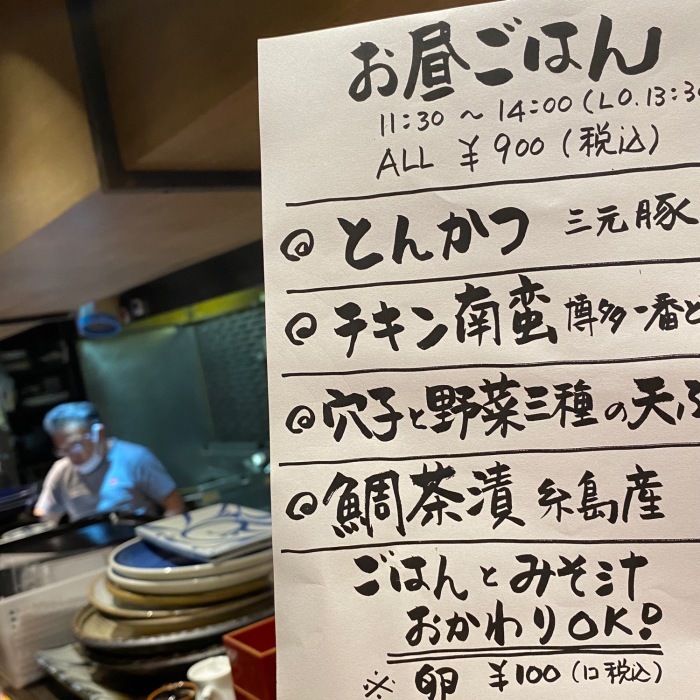 お昼ごはん
11:30 ~ 14:00 (LO. 13:30
ALL ¥900 (税込)
@ とんかつ 三元豚
@ チキン南蛮 博多一番ど
@ 穴子と野菜三種の天ぷ
@ 鯛茶漬 糸島産
ごはんとみそ汁
おかわりOK!
※ 卵 ¥100 (税込)